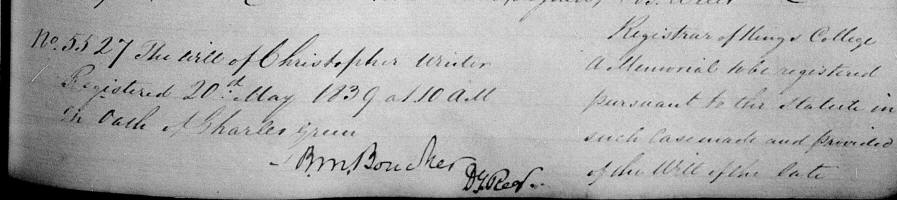 No. 5527 The Will of Christopher Winter
Registered 20th May 1839 at 10 AM
On Oath of Charles Green
B. M. Boucher
Dy Reg.
Registrar of Kings College
A Memorial to be registered
pursuant to the statute in
such case made and provided
of the Will of the late